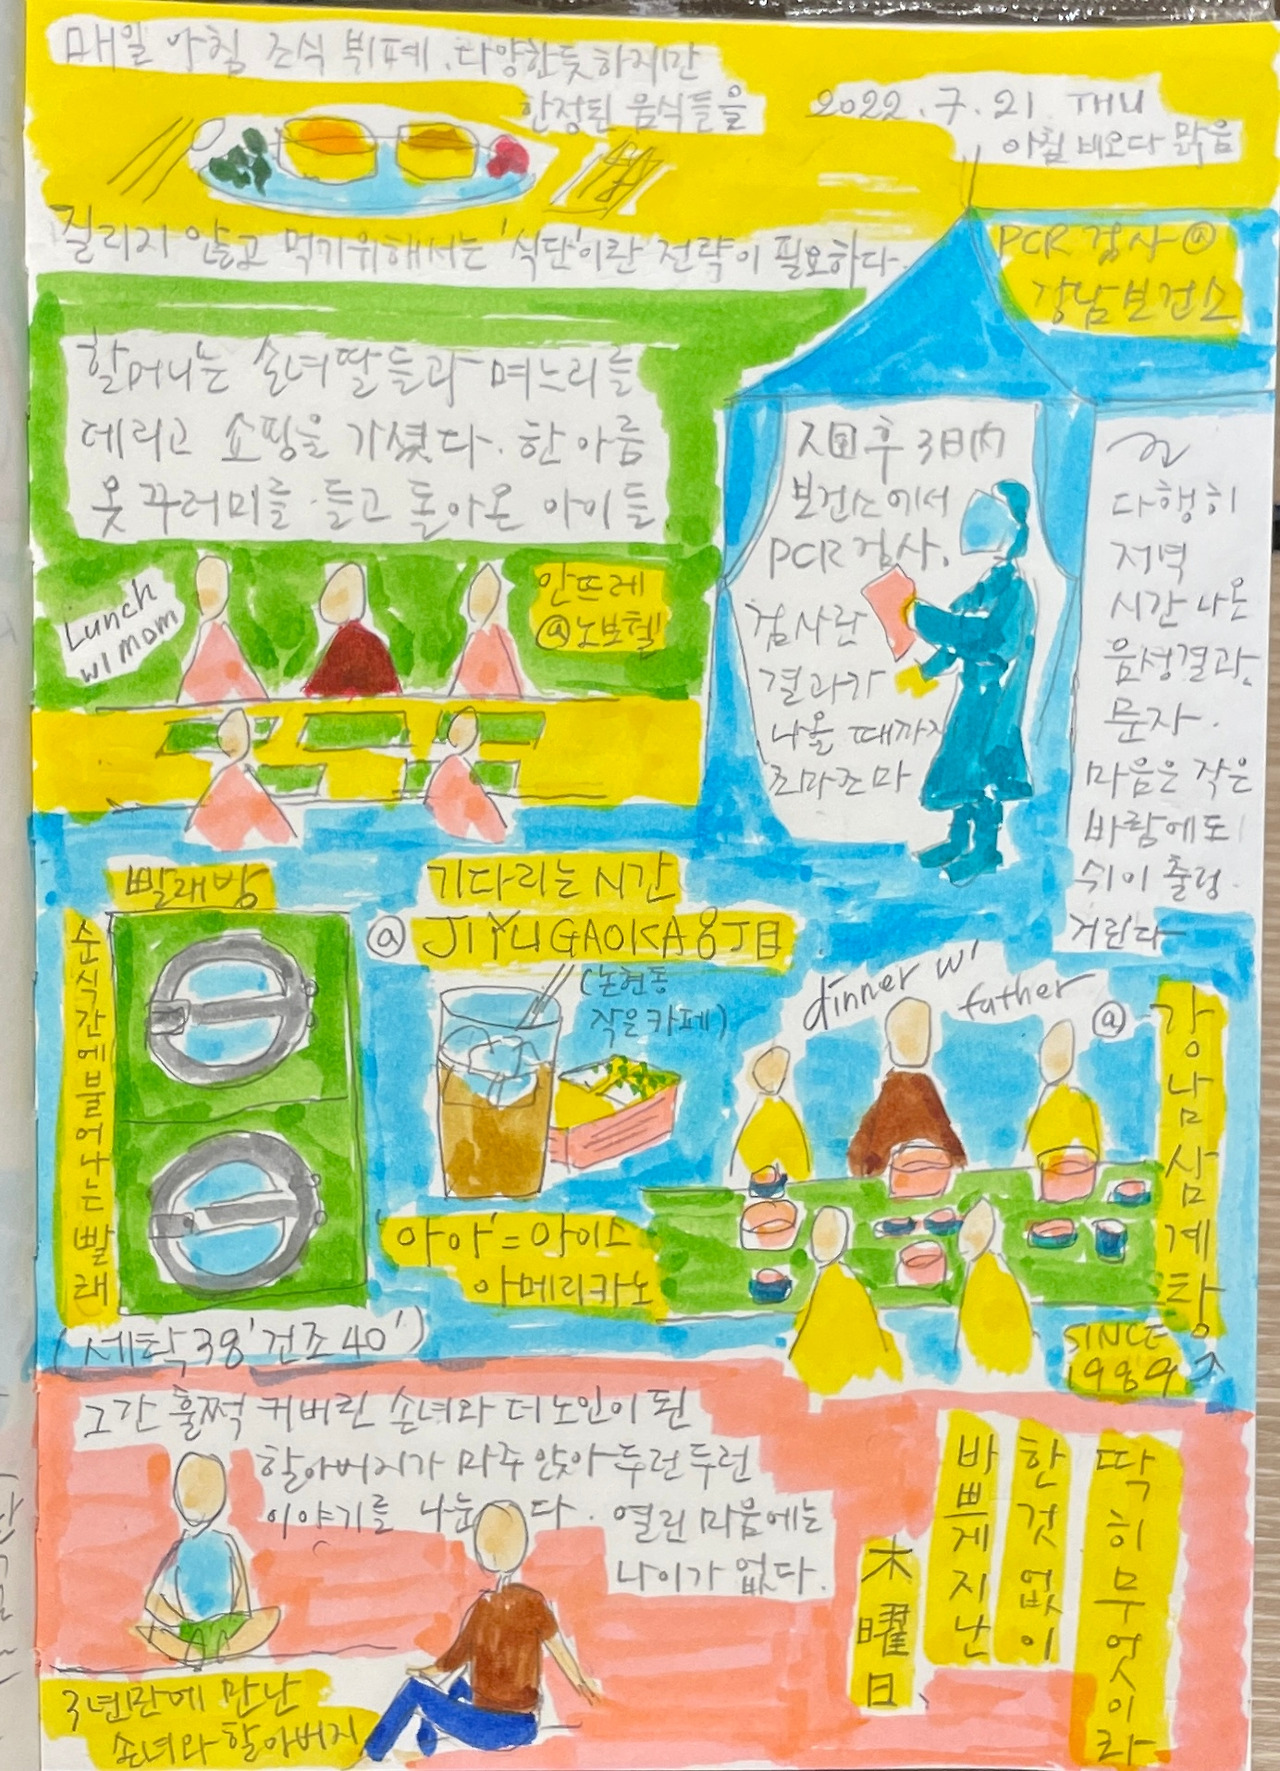 매일 아침 조식 뷔페. 다양한듯하지만
한정된 음식들을
2022.7.21 THU
아침 비오다 맑음
질리지 않고 먹기위해서는 '식단'이란 전략이 필요하다.
PCR 검사@
강남보건소
할머니는 손녀딸들과 며느리를
데리고 쇼핑을 가셨다. 한아름
옷 꾸러미를 들고 돌아온 아이들
Lunch
w/ mom
안뜨레
@노보텔
入国후 3日内
보건소에서
PCR 검사.
검사란
결과가
나올 때까지
조마조마
다행히
저녁
시간 나온
음성결과
문자.
마음은 작은
바람에도
쉬이 출렁
거린다
빨래방
순식간에불어나는빨래
(세탁38' 건조40')
기다리는 시간
@ JIYUGAOKA8丁目
(논현동
작은카페)
'아아' = 아이스
아메리카노
dinner w/
father
@ 강남삼계탕
SINCE
1989
그간 훌쩍 커버린 손녀와 더 노인이 된
할아버지가 마주 앉아 두런두런
이야기를 나눈다. 열린 마음에는
나이가 없다.
3년만에 만난
손녀와 할아버지
딱히무엇이라
한것없이
바쁘게지난
木曜日、